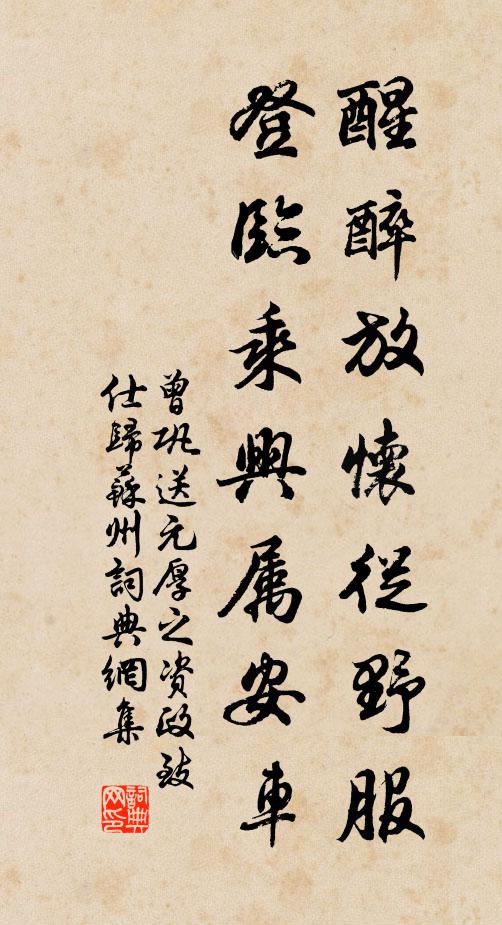 醒醉放懷從野服
登臨乘興屬安車
曾巩送元厚之资政致
仕歸蘇州詞典網集
詞典
网印